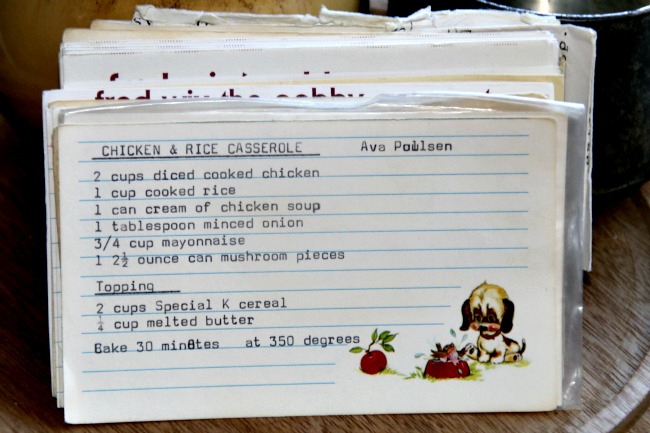 CHICKEN & RICE CASSEROLE Ava Poulsen
2 cups diced cooked chicken
1 cup cooked rice
1 can cream of chicken soup
1 tablespoon minced onion
3/4 cup mayonnaise
1 2½ ounce can mushroom pieces
Topping
2 cups Special K cereal
¼ cup melted butter
Bake 30 min8tes at 350 degrees